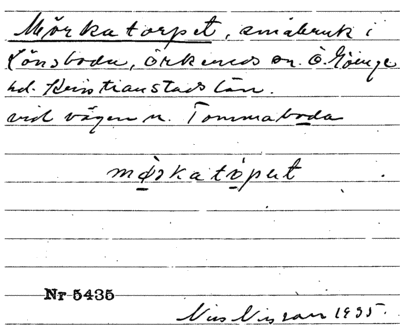 Mörkatorpet, småbruk i
Lönsboda, Örkeneds sn. Ö. Göinge
hd. Kristianstads län.
vid vägen n. Tommaboda
mørkatöpet
Nr 5435
Nils Nilsson 1935.